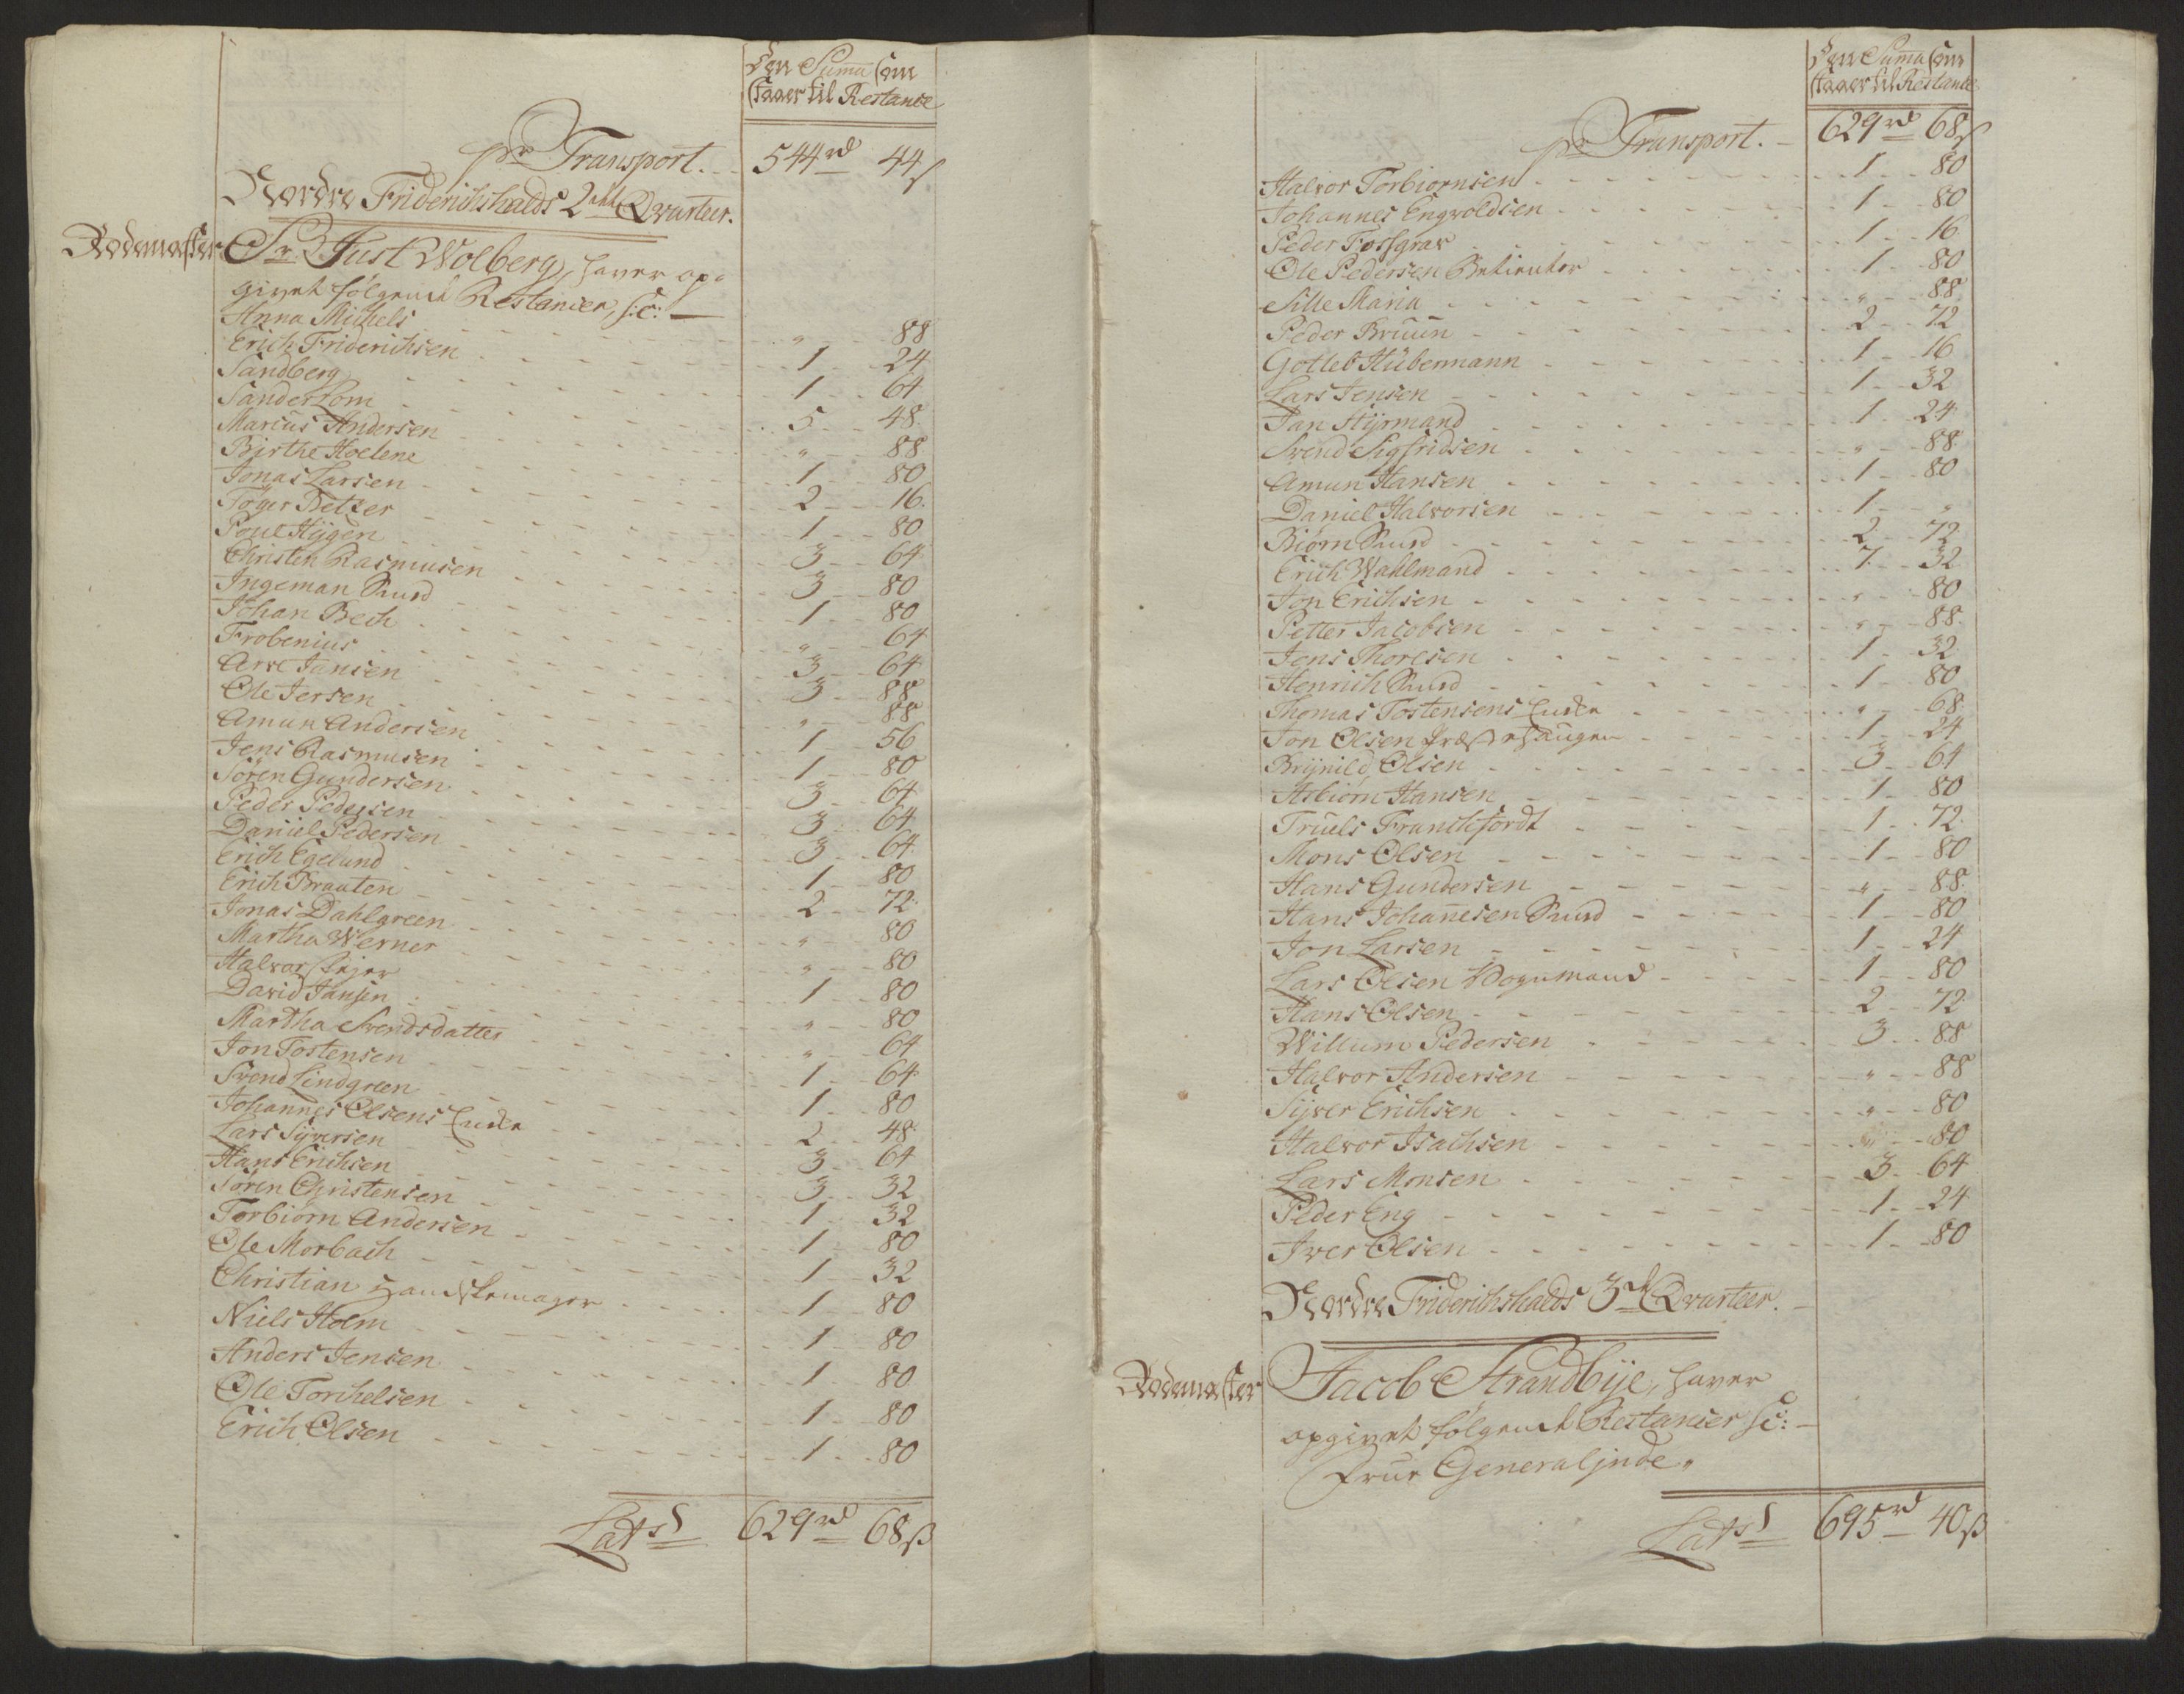 Den Summa som
staaer til Restance
pr Transport. 544 rd 44 ß
Nordre Friderichshalds 2det Qvarteer.
Rodemester Sr. Just Wolberg, haver op-
givet følgende Restancer, s:c:
Anna Michels " 88
Erich Friderichsen 1 24
Sandberg 1 64
Sander Lom 5 48
Marcus Andersen " 88
Birthe Hoelene 1 80
Jonas Larsen 2 16
Töger Betzer 1 80
Poul Hygen 3 64
Christen Rasmusen 3 80
Ingeman Smed 1 80
Johan Bech " 64
Frobenius 3 64
Arve Jansen 3 88
Ole Jersen " 88
Amun Andersen 1 56
Jens Rasmusen 1 80
Sören Gundersen 3 64
Peder Pedersen 3 64
Daniel Pedersen 3 64
Erich Egelund 1 80
Erich Braaten 2 72
Jonas Dahlgreen " 80
Martha Werner " 80
Halvor 1 80
David Jansen " 80
Martha Svendsdatter " 64
Jon Tostensen 1 64
Svend Lindgreen 1 80
Johannes Olsens Enke 2 48
Lars Syversen 3 64
Hans Erichsen 3 32
Sören Christensen 1 32
Torbiörn Andersen 1 80
Ole Morbach 1 32
Christian Handskemager 1 80
Niels Holm 1 80
Anders Jensen 1 80
Ole Torchelsen 1 80
Erich Olsen 1 80
Lats 629 rd 68 ß
Den Summa som
staaer til Restance
pr Transport. 629 rd 68 ß
Halvor Torbiornsen 1 80
Johannes Engvoldsen 1 80
Peder Fossgrav 1 16
Ole Pedersen Betienter 1 80
Sille Maria " 88
Peder Bruun 2 72
Gotleb Hübermann 1 16
Lars Jensen 1 32
Jan Styrmand 1 24
Svend Sigfridsen " 88
Amun Hansen 1 80
Daniel Halvorsen 1 "
Biörn Smed 2 72
Erich Wahlmand 7 32
Jon Erichsen " 80
Petter Jacobsen " 88
Jens Thoresen 1 32
Henrich Smed 1 80
Thomas Tostensens Enke " 68
Jon Olsen Præstehaugen 1 24
Brynild Olsen 3 64
Asbiörn Hansen 1 80
Truels Franckefordt 1 72
Mons Olsen 1 80
Hans Gundersen " 88
Hans Johanesen Smed 1 80
Jon Larsen 1 24
Lars Olsen Vognmand 1 80
Hans Olsen 2 72
Willum Pedersen 3 88
Halvor Andersen " 88
Syver Erichsen " 80
Halvor Isachsen " 80
Lars Monsen 3 64
Peder Eng 1 24
Iver Olsen 1 80
Nordre Friderichshalds 3de Qvarteer.
Rodemester Jacob Strandbye, haver
opgivet følgende Restancer s:c:
Frue Generalinde.
Lats 695 rd 40 ß